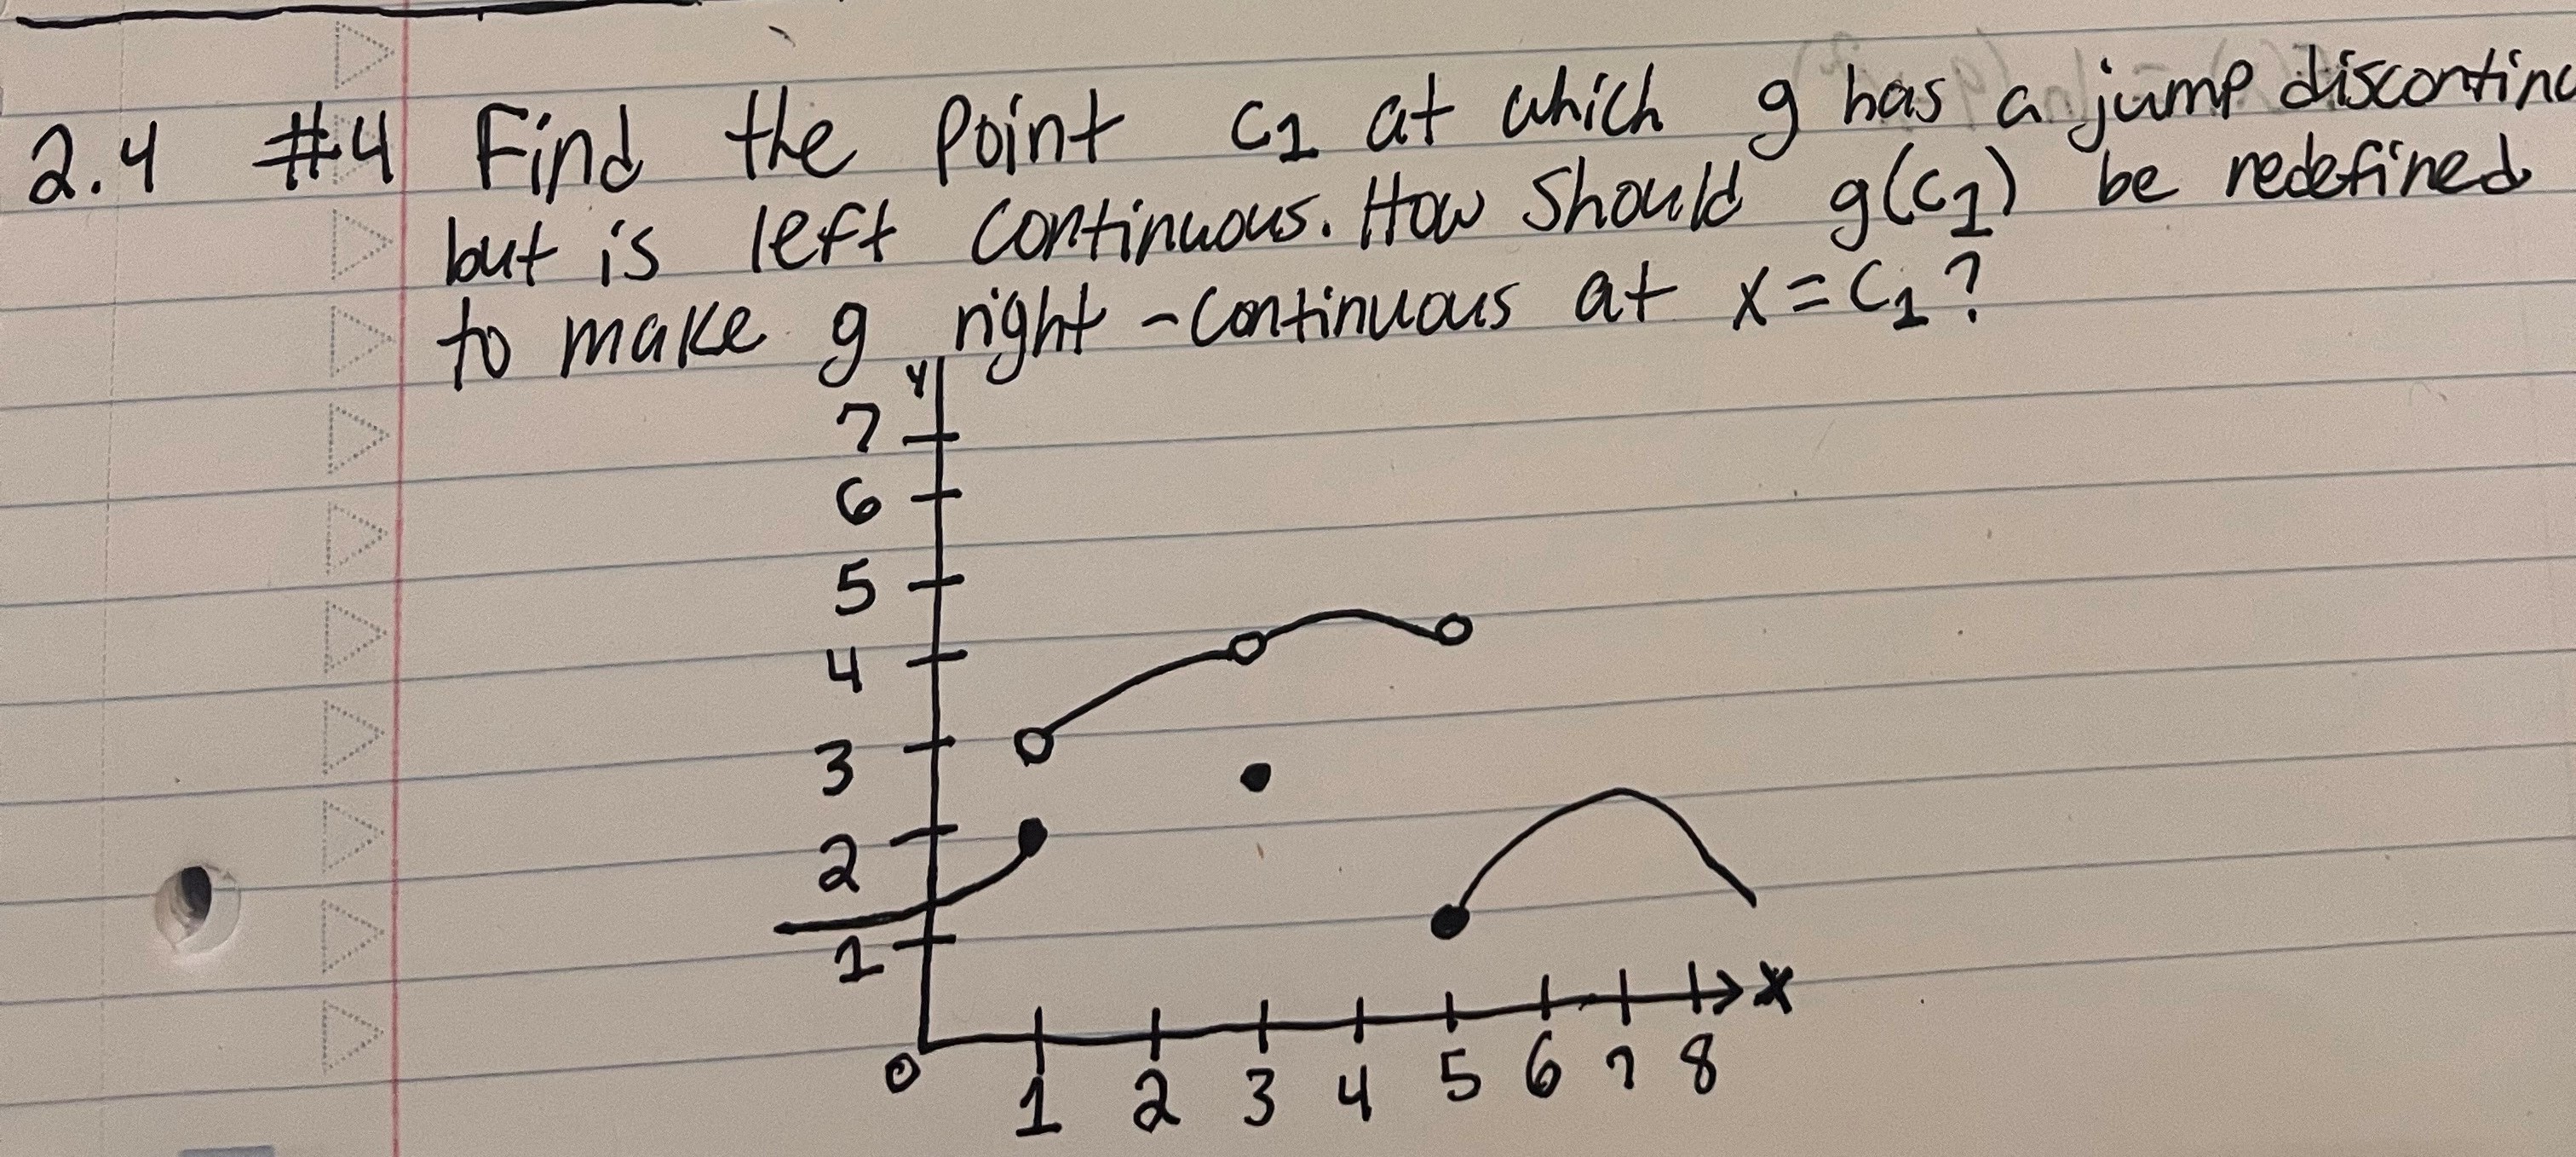 2.4 #4 Find the point c1 at which g has a jump discontinu
but is left continuous. How should g(c1) be redefined
to make g right-continuous at x=c1?
y
7
6
5
4
3
2
1
x
0 1 2 3 4 5 6 7 8